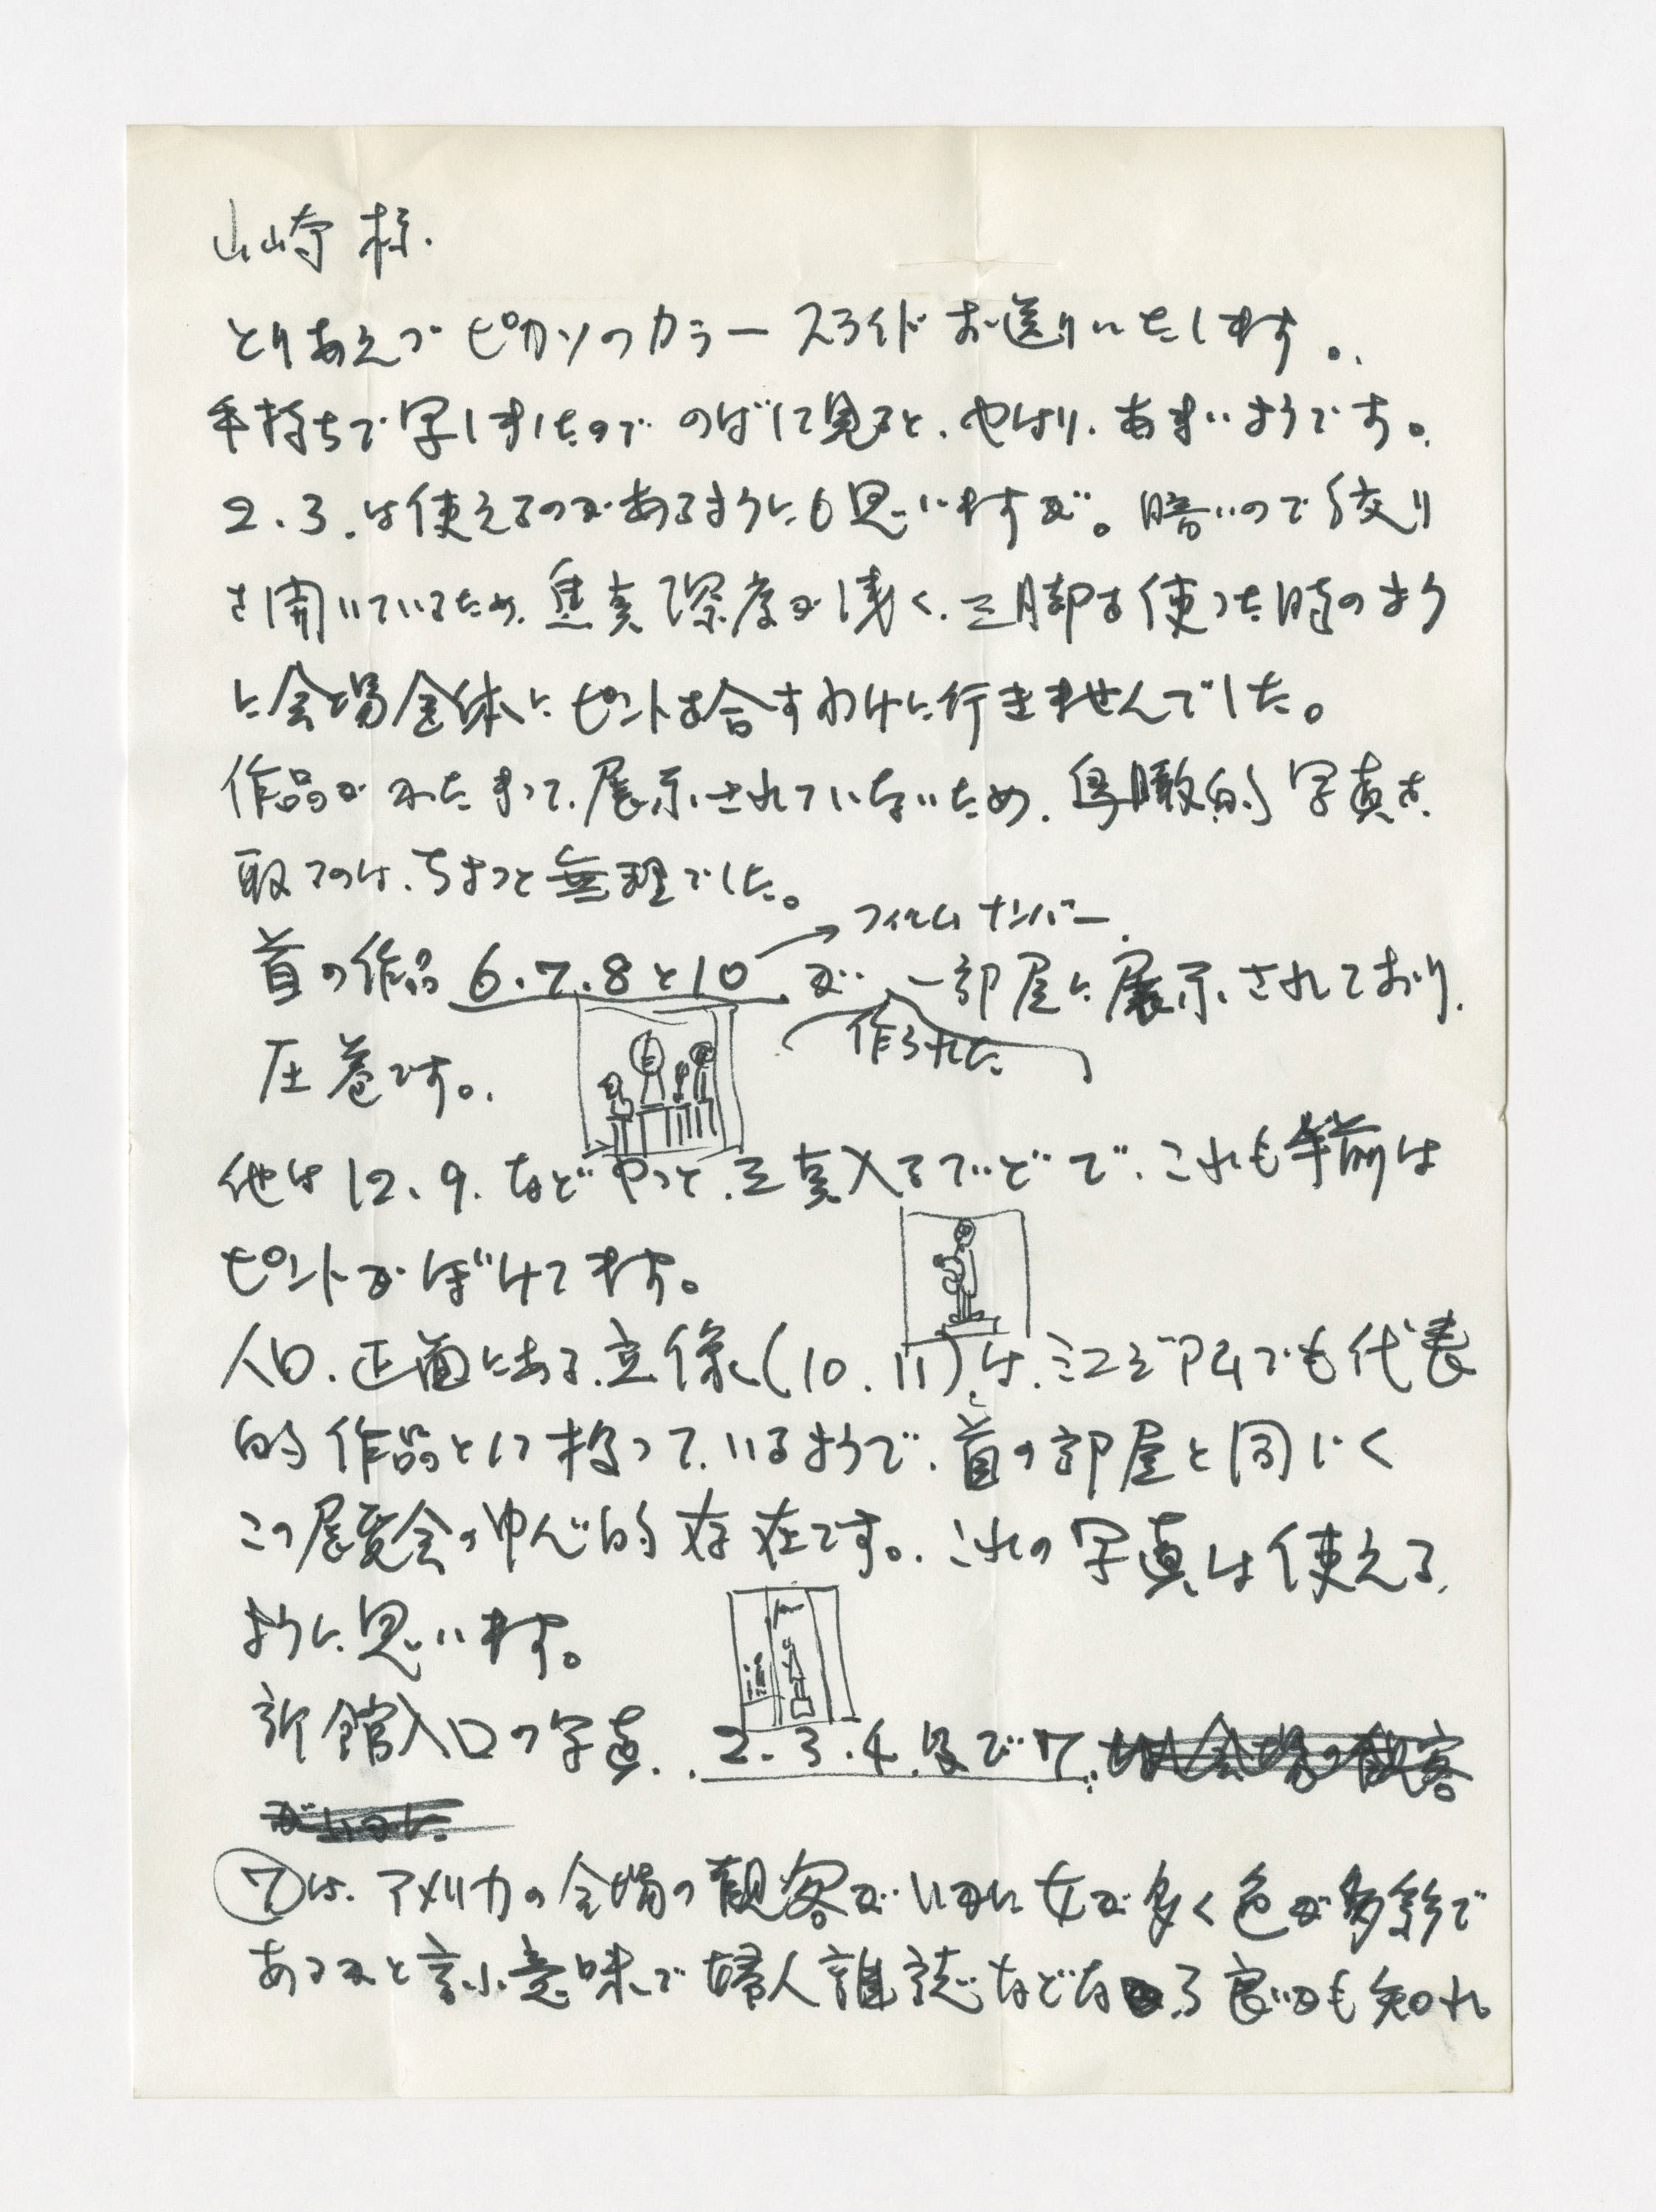 山崎様.
とりあえづピカソのカラースライドお送りいたします。
手持ちで写しましたのでのばして見ると、やはり、あまいようです。
2.3.は使えるのがあるようにも思いますが。暗いので絞り
を開いているため、焦点深度が浅く、三脚を使った時のよう
に会場全体にピントを合すわけに行きませんでした。
作品がかたまって、展示されていないため、鳥瞰的写真を
取るのは、ちょっと無理でした。
フィルムナンバー
首の作品6.7.8と10が一部屋に展示されており、
作られた
圧巻です。
他は12.9.などやっと、三点入るていどで、これも手前は
ピントがぼけてます。
入口、正面にある、立像(10.11)は、ミュージアムでも代表
的作品として扱っているようで、首の部屋と同じく
この展覧会の中心的存在です。これの写真は使える
ように思います。
新館入口の写真..2.3.4.及び7.
⑦は、アメリカの会場の観客がいかに女が多く色が多彩で
あるかと言う意味で婦人雑誌などなら良いかも知れ